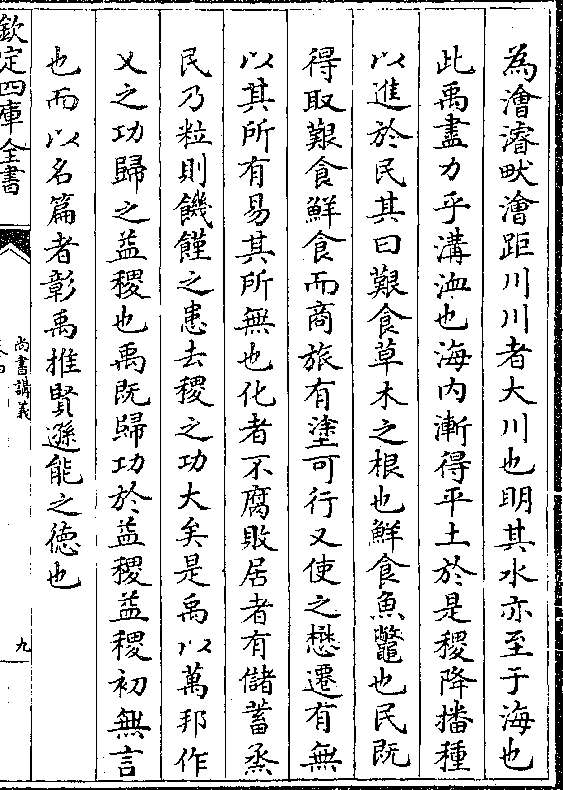 為澮濬畎澮距川川者大川也明其水亦至于海也
此禹盡力乎溝洫也海内漸得平土於是稷降播種
以進於民其曰艱食草木之根也鮮食魚鼈也民既
得取艱食鮮食而商旅有塗可行又使之懋遷有無
以其所有易其所無也化者不腐敗居者有儲蓄烝
民乃粒則饑饉之患去稷之功大矣是禹以萬邦作
乂之功歸之益稷也禹既歸功於益稷益稷初無言
也而以名篇者彰禹推賢遜能之徳也
欽定四庫全書
尚書講義
九